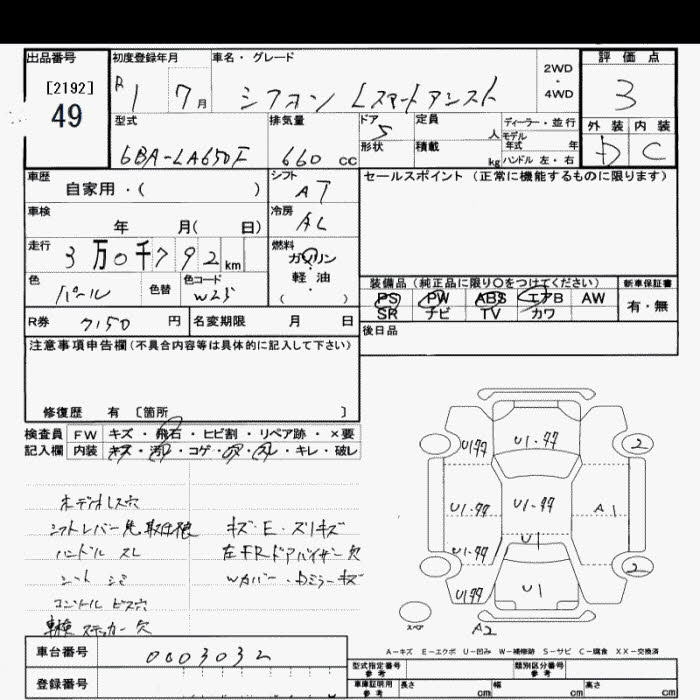 出品番号 初度登録年月 車名・グレード 2WD・4WD 評価点
[2192] 49 R1 7月 シフォン Lスマートアシスト 3
型式 排気量 ドア 定員 人 ディーラー・並行 外装 内装
5 モデル年式 年 D C
6BA-LA650F 660 cc 形状 積載 kg ハンドル 左・右
車歴 シフト セールスポイント(正常に機能するものに限ります)
自家用・( ) AT
車検 冷房
年 月( 日) AC
走行 燃料
3万0千792km ガソリン
色 色替 色コード 軽油 装備品(純正品に限り○をつけてください) 新車保証書
パール W25 ( ) PS PW ABS エアB AW 有・無
SR ナビ TV カワ
R券 7150円 名変期限 月 日 後日品
注意事項申告欄(不具合内容等は具体的に記入して下さい)
修復歴 有 [箇所 ]
検査員 FW キズ・飛石・ヒビ割・リペア跡・×要
記入欄 内装 キズ・汚・コゲ・穴・スレ・キレ・破レ
オーディオレス穴
シフトレバー先 取付 キズ・E・ズリキズ
ハンドル スレ 左FRドアバイザー欠
シート シミ Wカバー・Dミラーキズ
ビス穴
車検ステッカー欠
U1ヤヤ U1・ヤヤ 2
U1・ヤヤ U1・ヤヤ A1
U1・ヤヤ U1
U1ヤヤ U1 2
スペア A2
A-キズ E-エクボ U-凹み W-補修跡 S-サビ C-腐食 XX-交換済
車台番号 0003032
登録番号
型式指定番号 参考 類別区分番号 参考
車庫証明用 参考 長さ cm 幅 cm 高さ cm